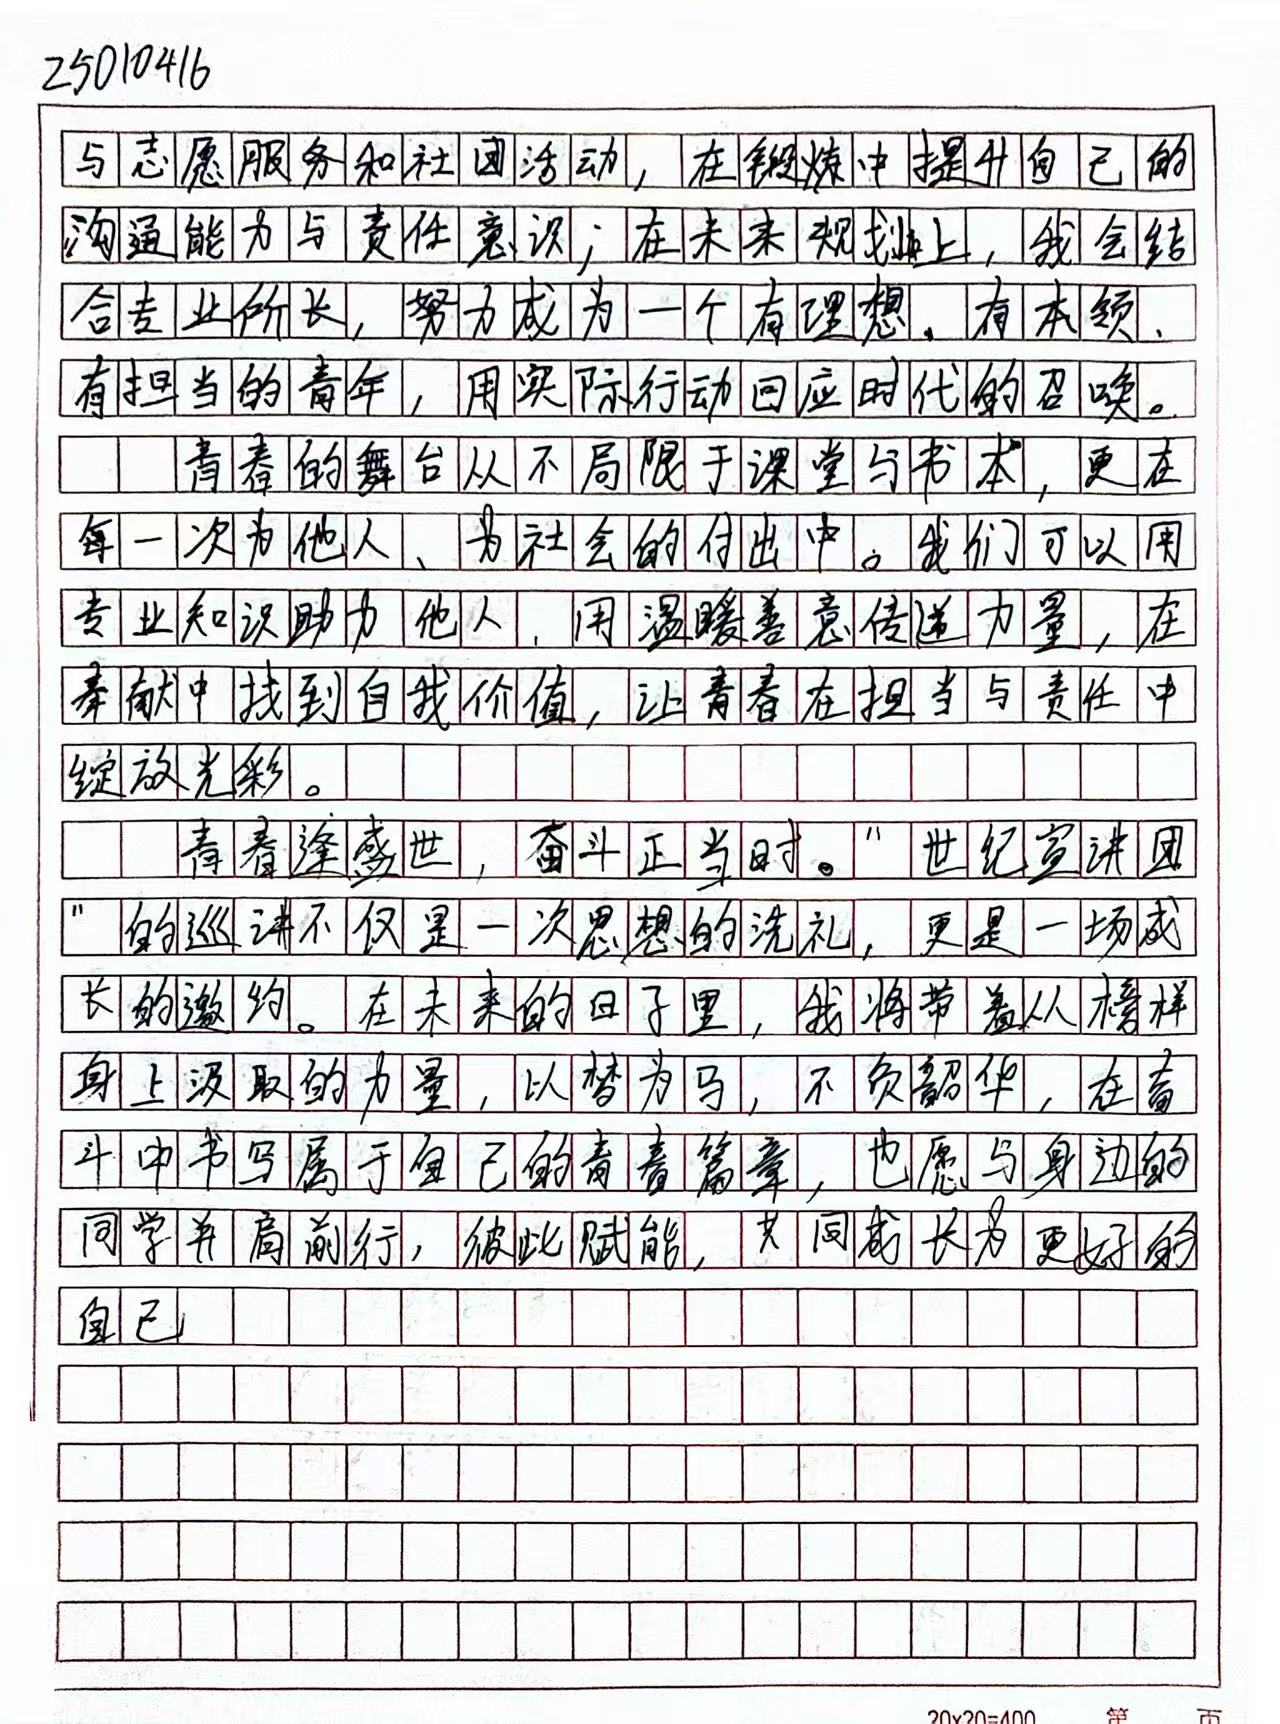 25010416
与志愿服务和社团活动，在锻炼中提升自己的
沟通能力与责任意识；在未来规划上，我会结
合专业所长，努力成为一个有理想、有本领、
有担当的青年，用实际行动回应时代的召唤。
青春的舞台从不局限于课堂与书本，更在
每一次为他人、为社会的付出中。我们可以用
专业知识助力他人，用温暖善意传递力量，在
奉献中找到自我价值，让青春在担当与责任中
绽放光彩。
青春逢盛世，奋斗正当时。"世纪宣讲团
"的巡讲不仅是一次思想的洗礼，更是一场成
长的邀约。在未来的日子里，我将带着从榜样
身上汲取的力量，以梦为马，不负韶华，在奋
斗中书写属于自己的青春篇章，也愿与身边的
同学并肩前行，彼此赋能，共同成长为更好的
自己
20×20=400 第 页